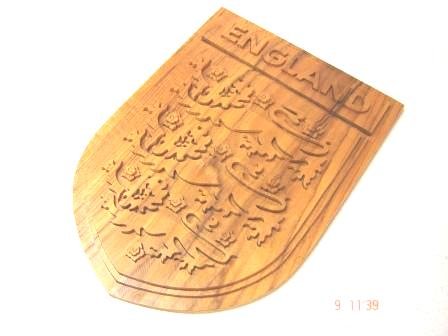 ENGLAND
9 11:39